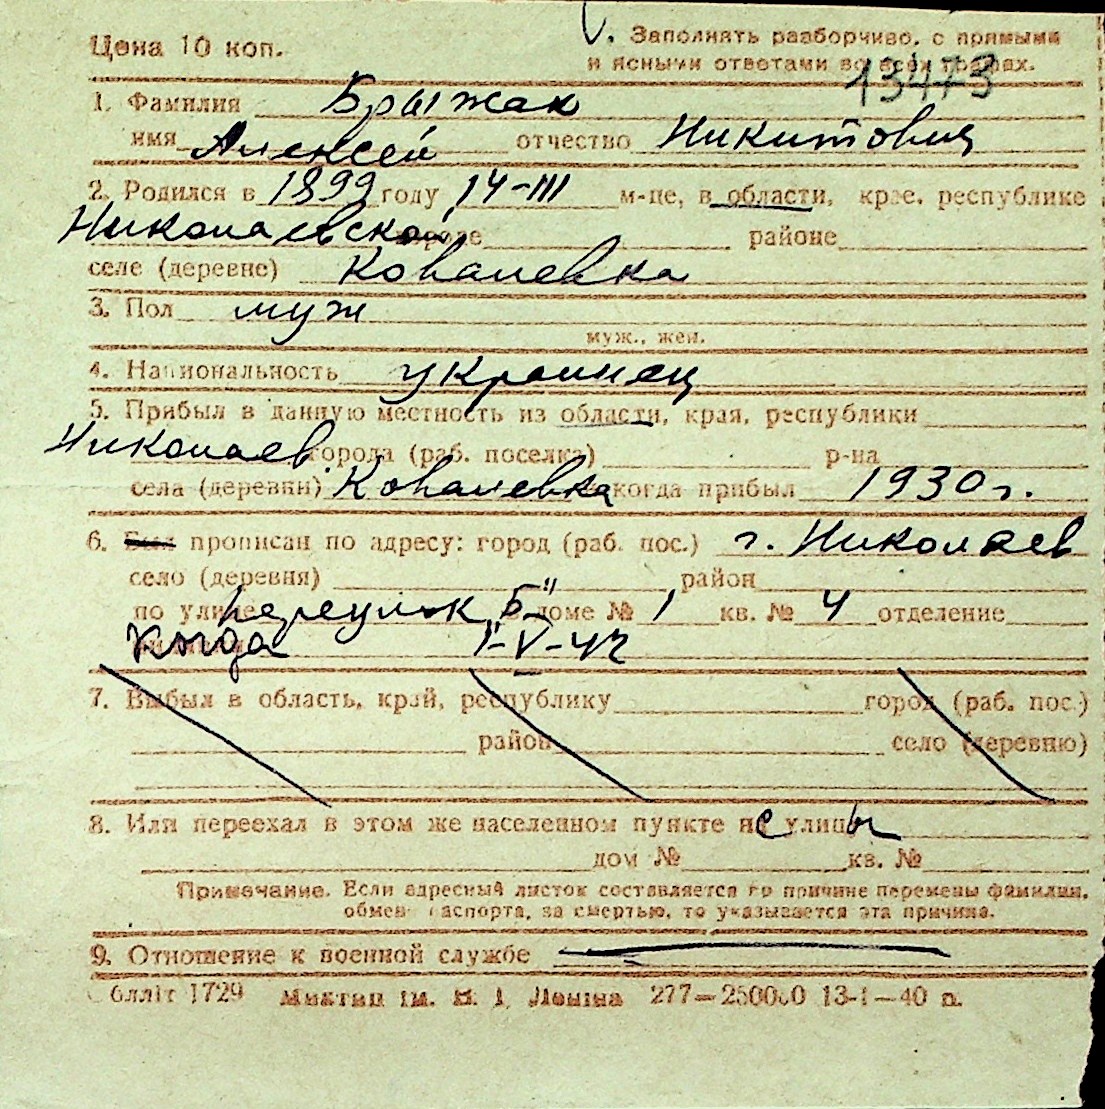 Цена 10 коп.
Заполнять разборчиво, с прямыми
и ясными ответами во всех графах.
13473
1. Фамилия Брыжак
имя Алексей отчество Никитович
2. Родился в 1899 году 14-III м-це, в области, крае, республике
Николаевской городе районе
селе (деревне) Ковалевка
3. Пол муж
муж., жен.
4. Национальность украинец
5. Прибыл в данную местность из области, края, республики
Николаев. города (раб. поселка) р-на
села (деревни) Ковалевка когда прибыл 1930 г.
6. Был прописан по адресу: город (раб. пос.) г. Николаев
село (деревня) район
по улице переулок „Б" доме № 1 кв. № 4 отделение
когда 1-V-42
7. Выбыл в область, край, республику город (раб. пос.)
район село (деревню)
8. Или переехал в этом же населенном пункте с улицы
дом № кв. №
Примечание. Если адресный листок составляется по причине перемены фамилии,
обмен паспорта, за смертью, то указывается эта причина.
9. Отношение к военной службе
Обліт 1729 ім. В. І. Леніна 277—250000 13-I—40 п.